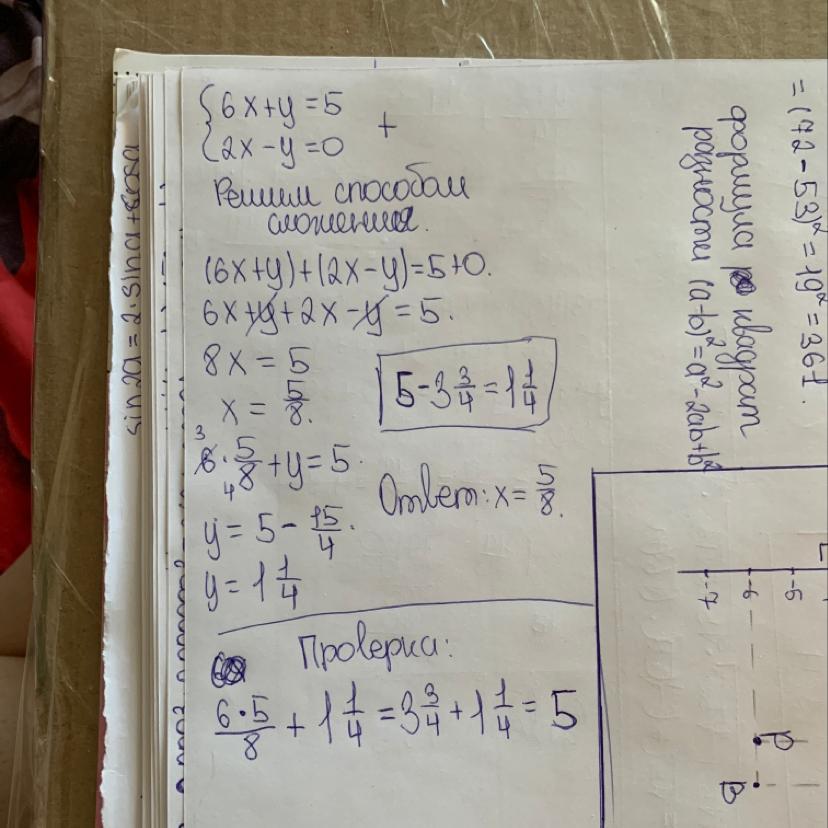 {6x+y=5
2x-y=0 +
Решим способом
сложения.
(6x+y)+(2x-y)=5+0.
6x+y+2x-y=5.
8x=5
x=5/8.
5-3 3/4=1 1/4
6·5/8+y=5.
3
4
y=5-15/4.
y=1 1/4
Ответ: x=5/8.
Проверка:
6·5/8+1 1/4=3 3/4+1 1/4=5
=(72-53)²=19²=361.
формула квадрат
разности (a-b)²=a²-2ab+b²
-7 -6 -5
P
B